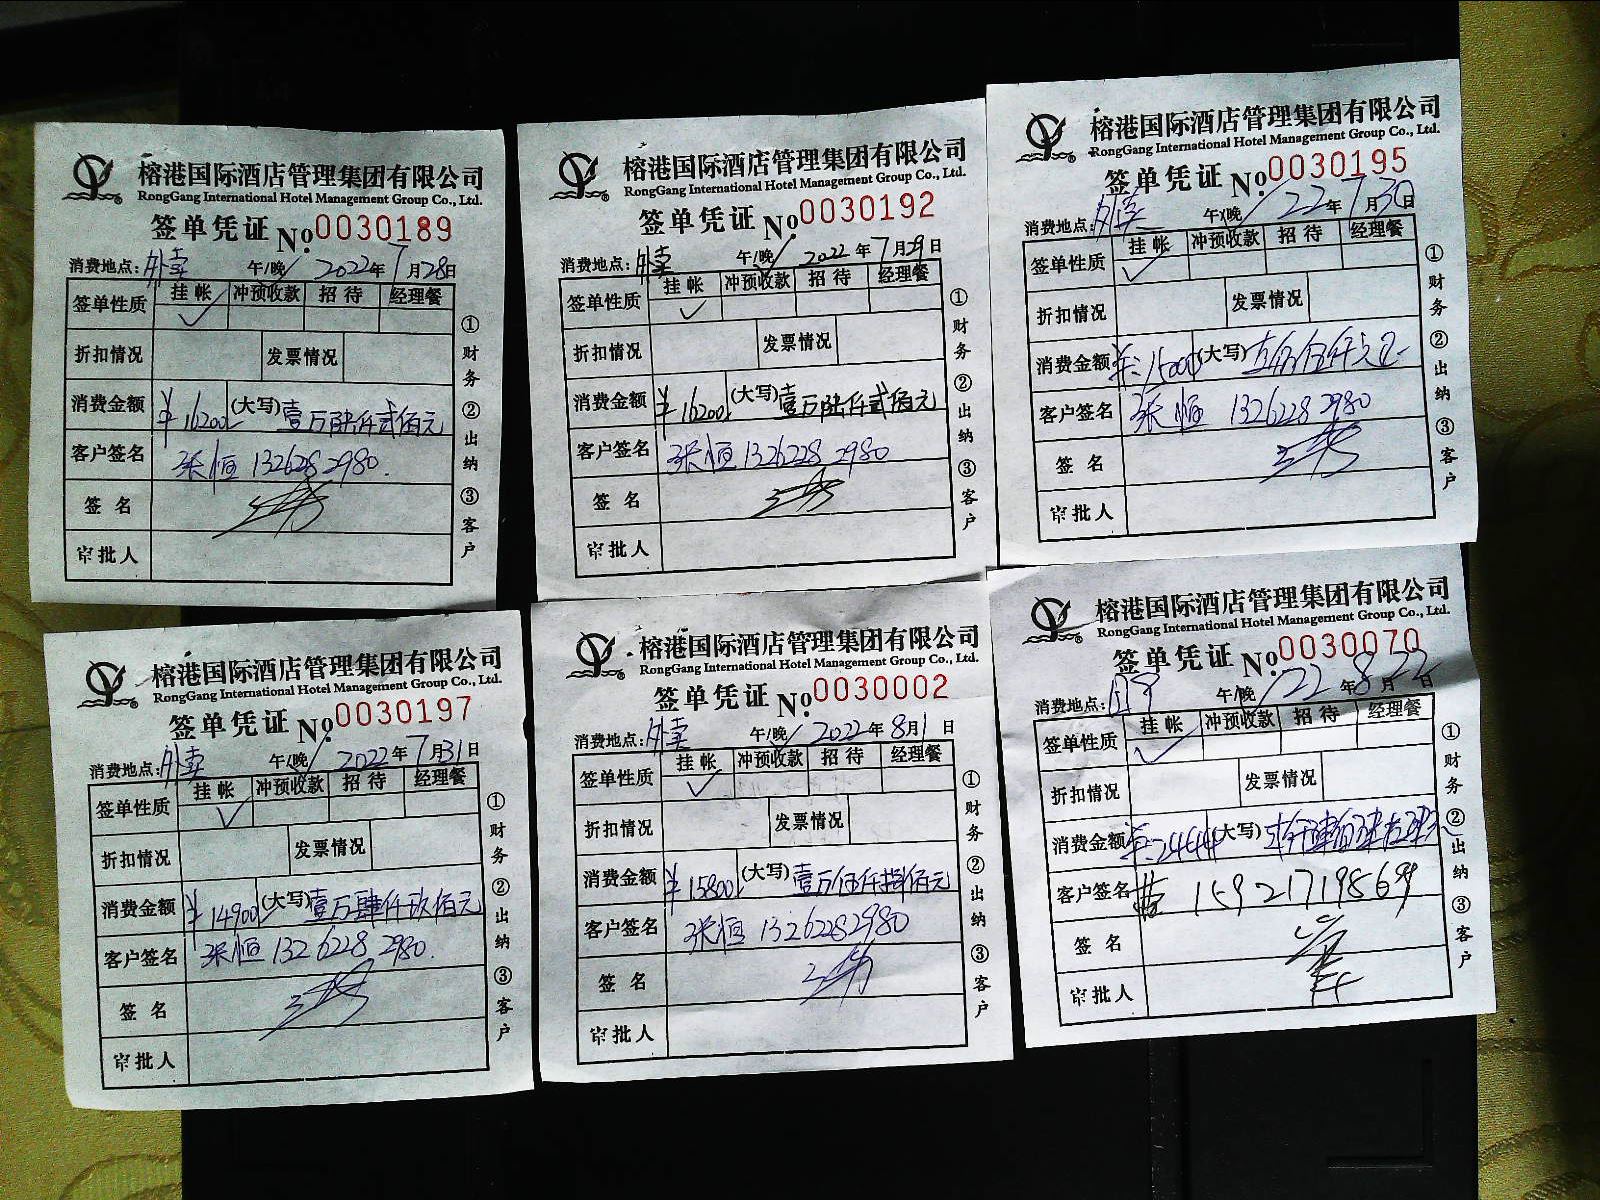 榕港国际酒店管理集团有限公司
RongGang International Hotel Management Group Co., Ltd.
签单凭证 No. 0030189
消费地点: 外卖 午/晚 2022年7月28日
签单性质 挂帐 冲预收款 招待 经理餐
✓
折扣情况 发票情况
消费金额 ¥16200 (大写) 壹万陆仟贰佰元
客户签名 张恒 13262282980
签名
审批人
①财务 ②出纳 ③客户
榕港国际酒店管理集团有限公司
RongGang International Hotel Management Group Co., Ltd.
签单凭证 No. 0030192
消费地点: 外卖 午/晚 2022年7月29日
签单性质 挂帐 冲预收款 招待 经理餐
✓
折扣情况 发票情况
消费金额 ¥16200 (大写) 壹万陆仟贰佰元
客户签名 张恒 13262282980
签名
审批人
①财务 ②出纳 ③客户
榕港国际酒店管理集团有限公司
RongGang International Hotel Management Group Co., Ltd.
签单凭证 No. 0030195
消费地点: 外卖 午/晚 22年7月30日
签单性质 挂帐 冲预收款 招待 经理餐
✓
折扣情况 发票情况
消费金额 (大写)
客户签名 张恒 13262282980
签名
审批人
①财务 ②出纳 ③客户
榕港国际酒店管理集团有限公司
RongGang International Hotel Management Group Co., Ltd.
签单凭证 No. 0030197
消费地点: 外卖 午/晚 2022年7月31日
签单性质 挂帐 冲预收款 招待 经理餐
✓
折扣情况 发票情况
消费金额 ¥14900 (大写) 壹万肆仟玖佰元
客户签名 张恒 13262282980
签名
审批人
①财务 ②出纳 ③客户
榕港国际酒店管理集团有限公司
RongGang International Hotel Management Group Co., Ltd.
签单凭证 No. 0030002
消费地点: 外卖 午/晚 2022年8月1日
签单性质 挂帐 冲预收款 招待 经理餐
✓
折扣情况 发票情况
消费金额 ¥15800 (大写) 壹万伍仟捌佰元
客户签名 张恒 13262282980
签名
审批人
①财务 ②出纳 ③客户
榕港国际酒店管理集团有限公司
RongGang International Hotel Management Group Co., Ltd.
签单凭证 No. 0030070
消费地点: 午/晚 22年8月22日
签单性质 挂帐 冲预收款 招待 经理餐
✓
折扣情况 发票情况
消费金额 (大写)
客户签名 15921719869
签名
审批人
①财务 ②出纳 ③客户